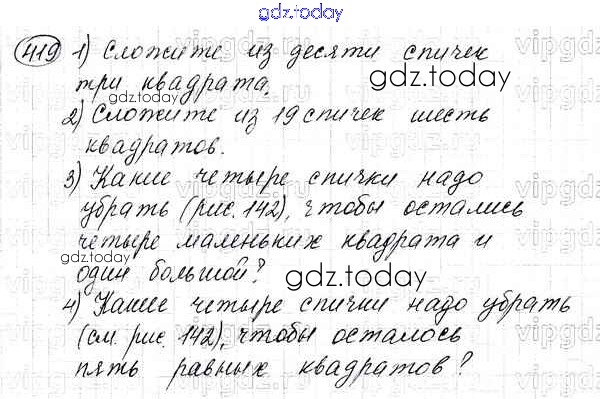 gdz.today
419 1) Сложите из десяти спичек
три квадрата.
gdz.today
2) Сложите из 19 спичек шесть
квадратов.
3) Какие четыре спички надо
убрать (рис. 142), чтобы остались
четыре маленьких квадрата и
gdz.today
один большой?
gdz.today
4) Какие четыре спички надо убрать
(см. рис. 142), чтобы осталось
пять равных квадратов?